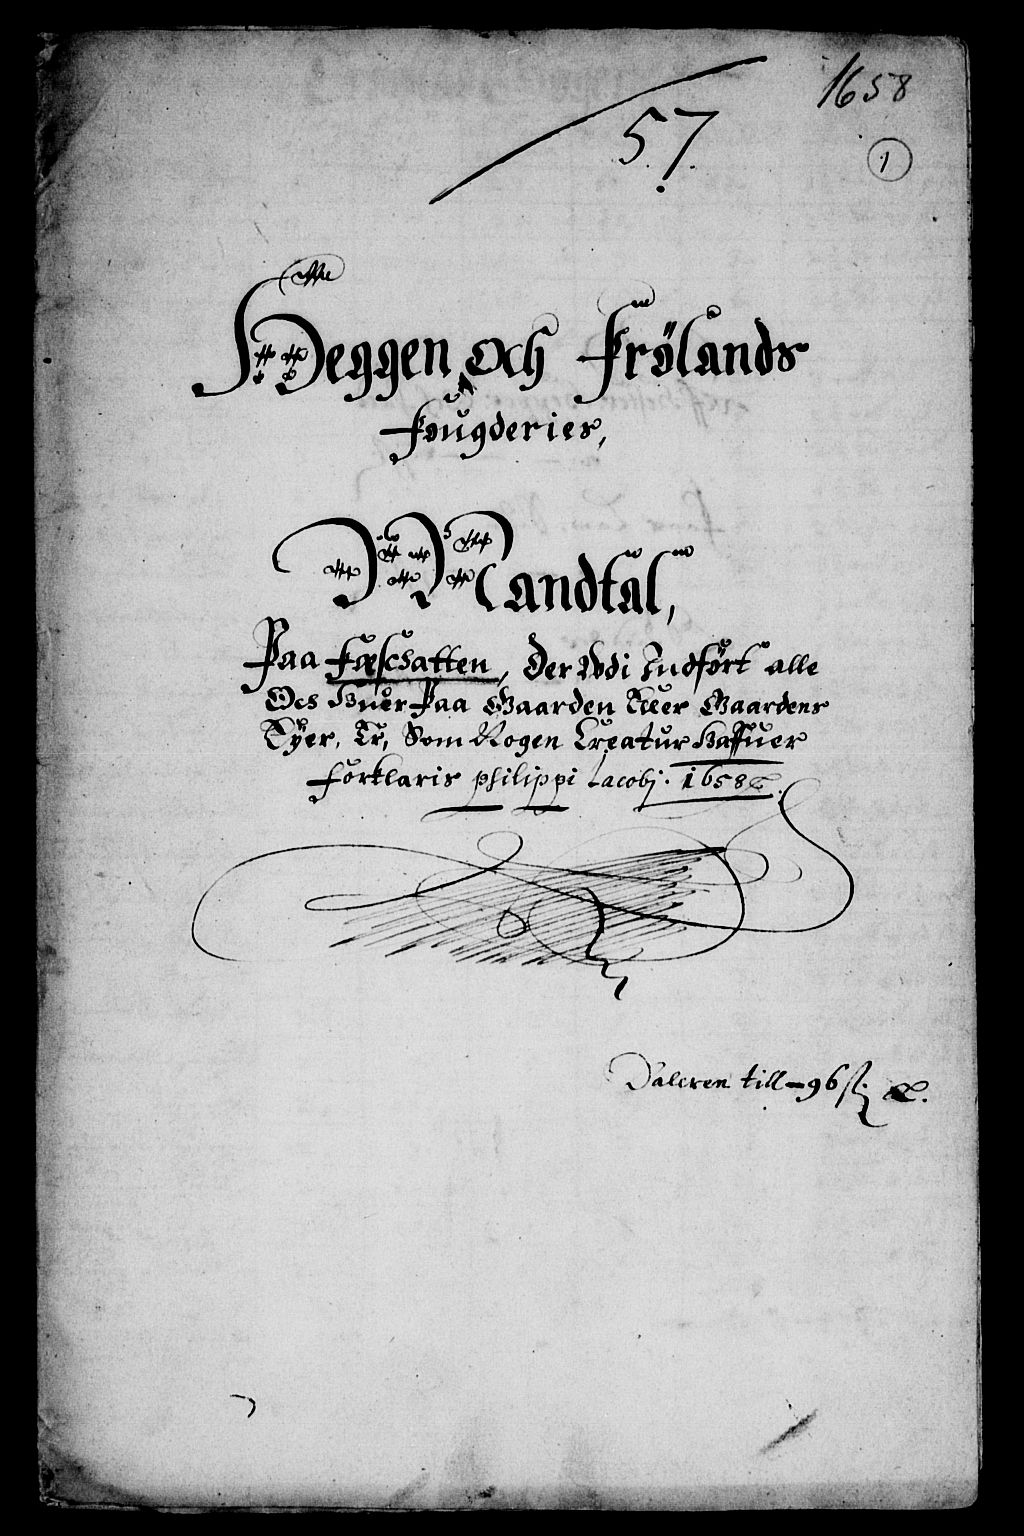 1658
57.
1
Heggen och Frølands
Fougderies,
Mandtal,
Paa Fæschatten, Der Udi Indført alle
Och Huer Paa Gaarden Eller Gaardens
Eyer, Er, Som Nogen Creatur Haffuer
Forklaris philippi Jacobj: 1658
Daleren till 96 ſk